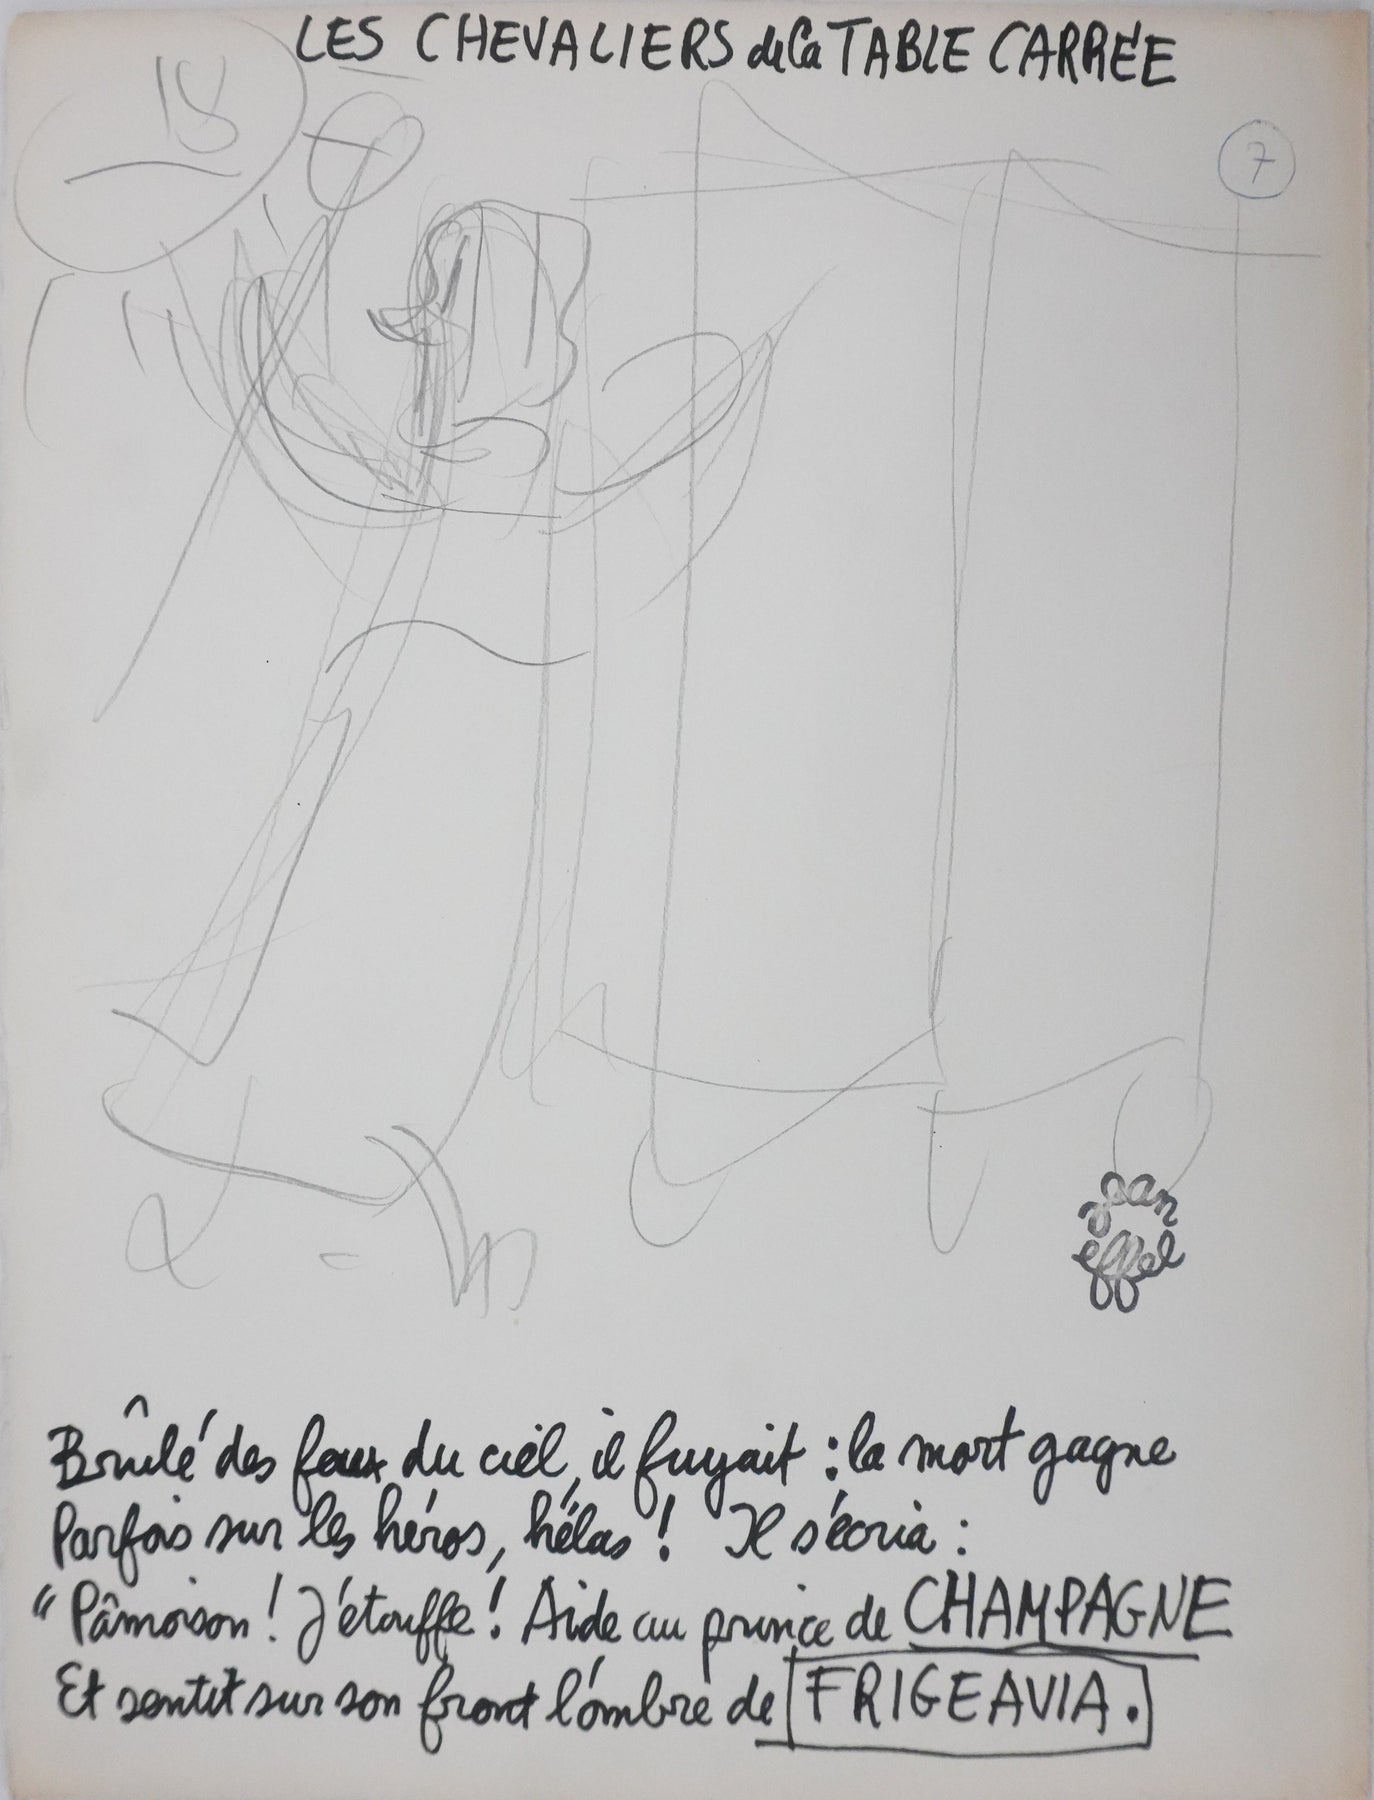 LES CHEVALIERS de la TABLE CARRÉE
18
7
jean
effel
Brûlé des feux du ciel, il fuyait : la mort gagne
Parfois sur les héros, hélas ! Il s'écria :
"Pâmoison ! J'étouffe ! Aide au prince de CHAMPAGNE
Et sentit sur son front l'ombre de FRIGEAVIA.